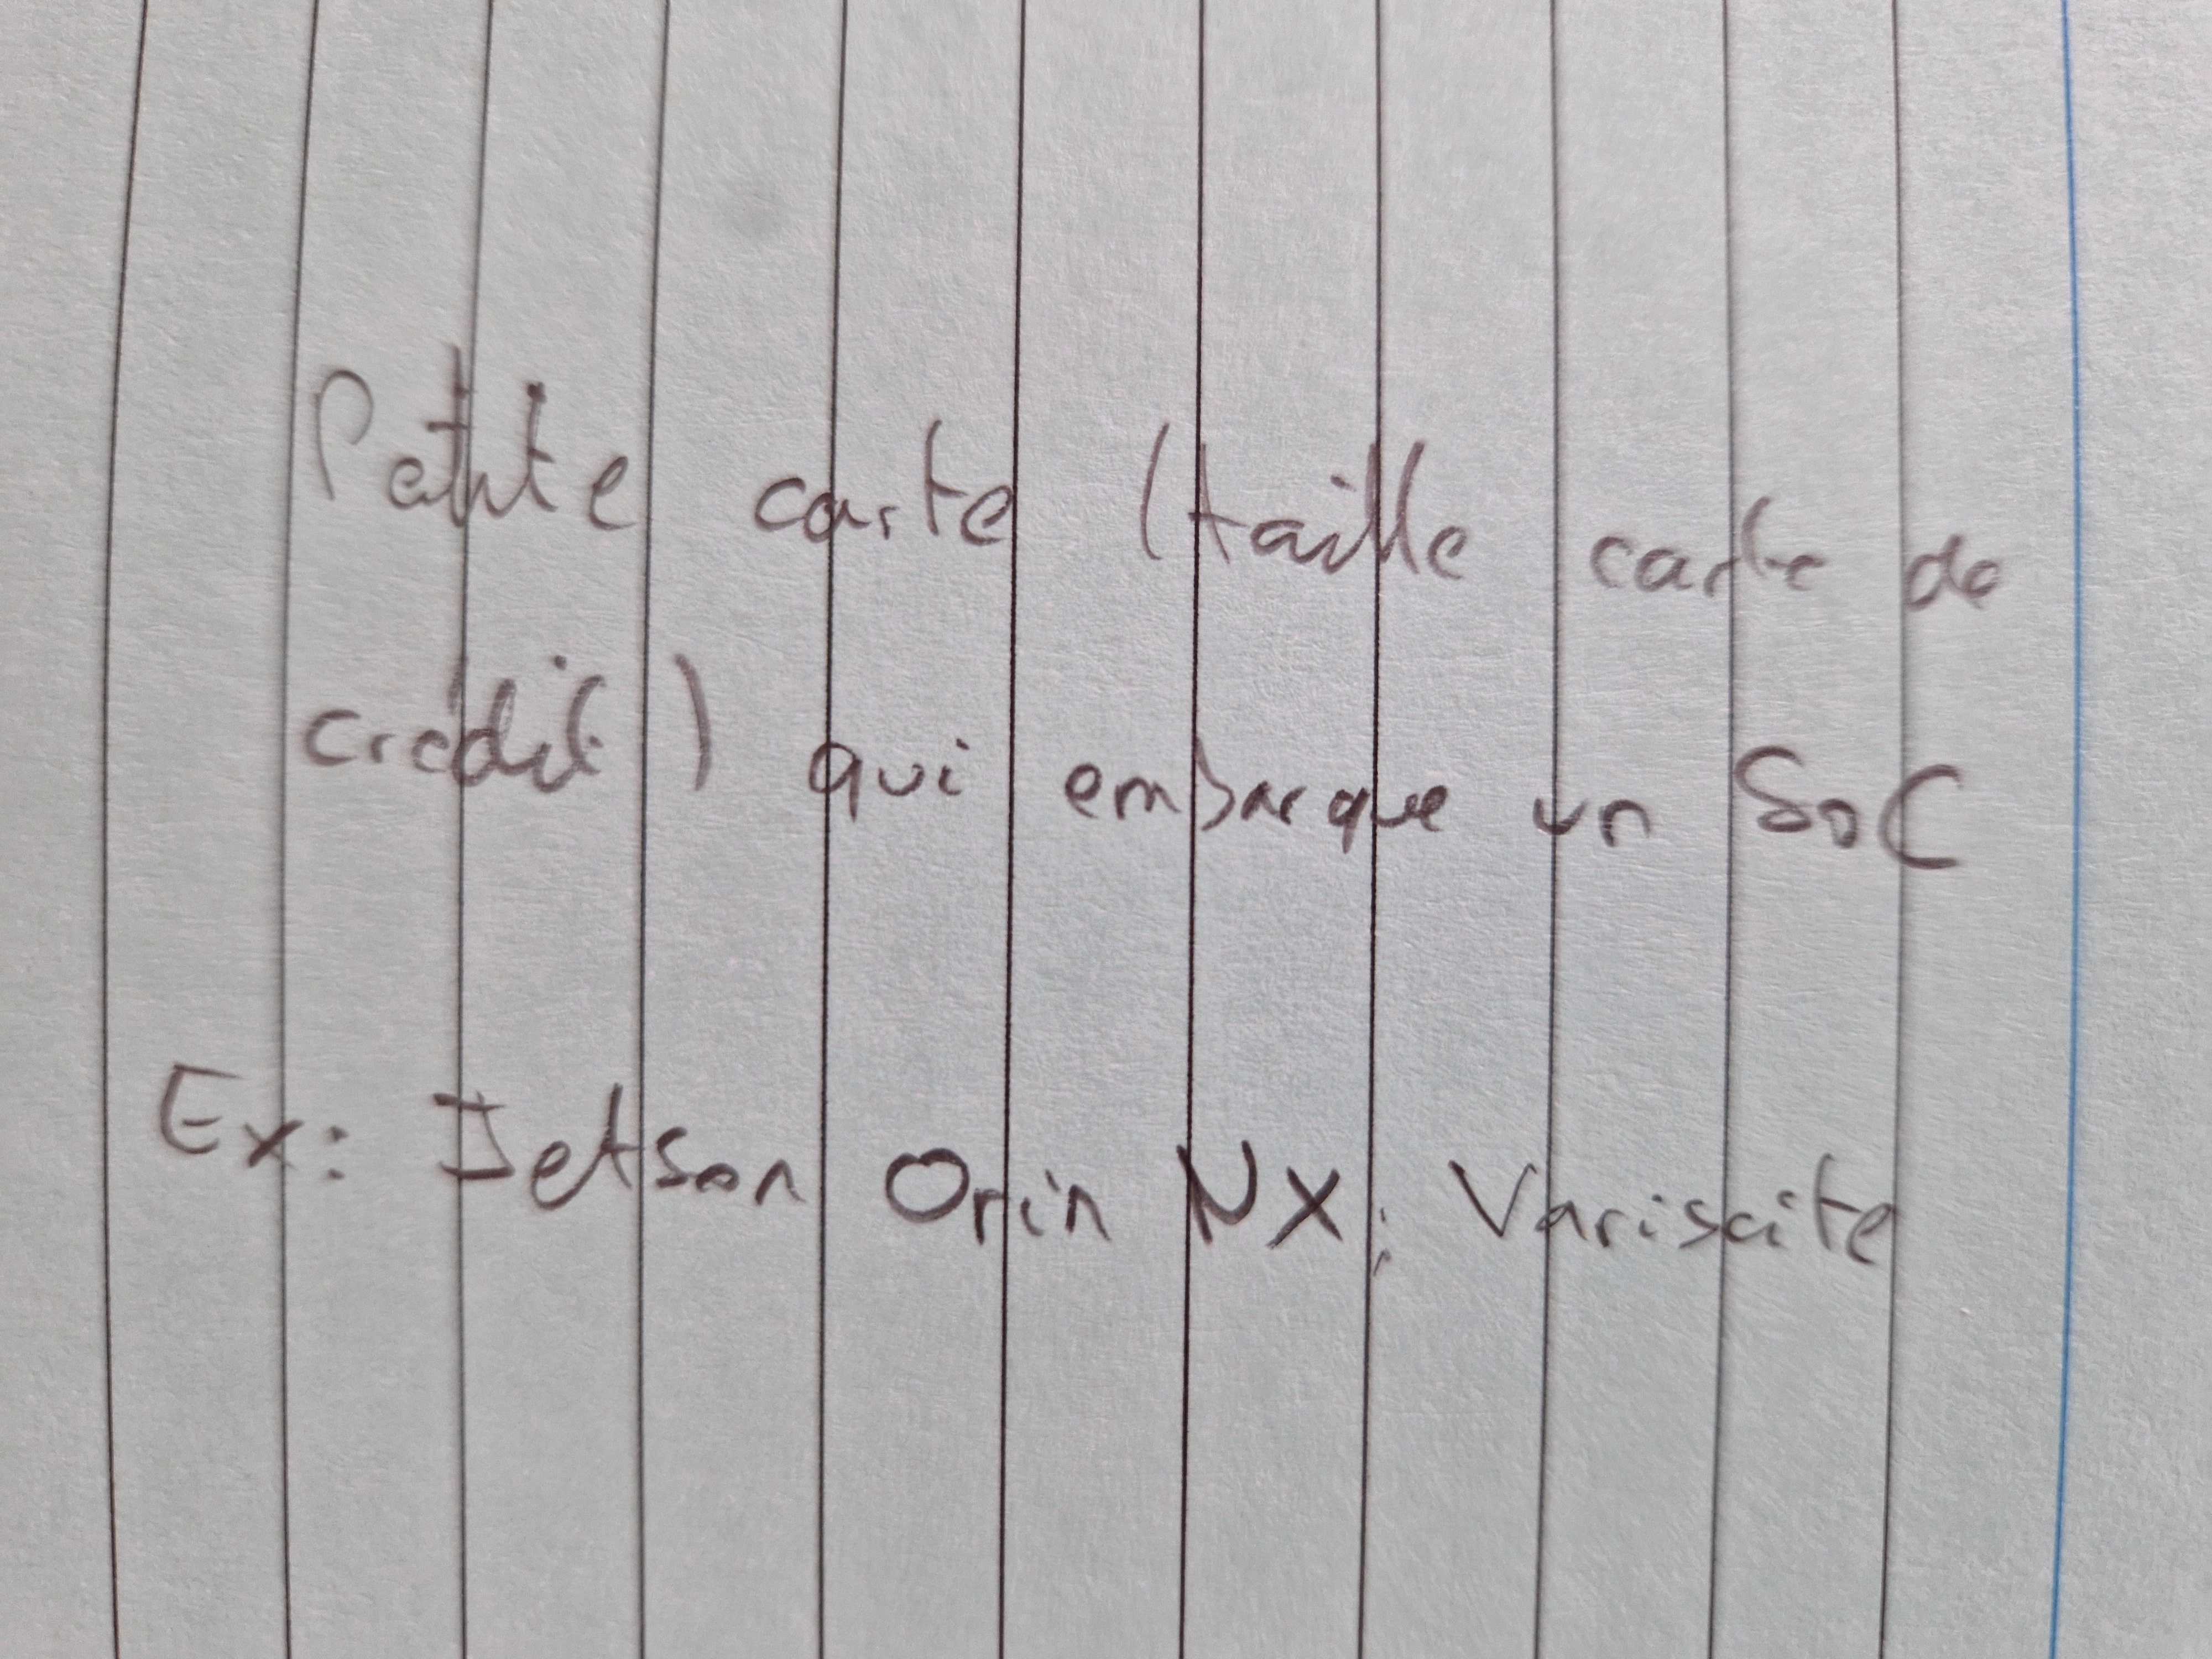 Petite carte (taille carte de
crédit) qui embarque un SoC
Ex: Jetson Orin NX; Variscite